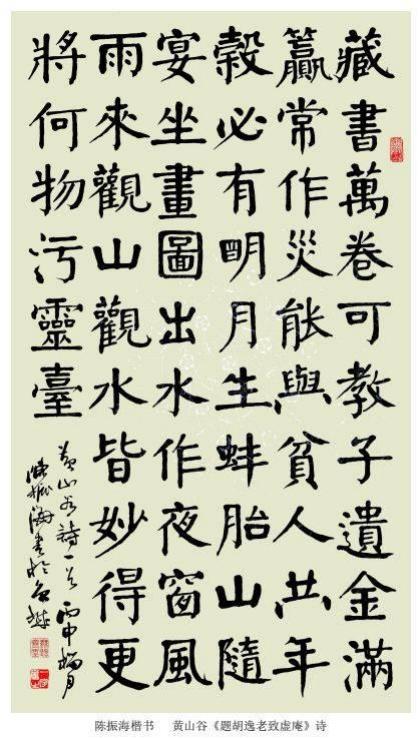 藏書萬卷可教子遺金滿
籯常作災能與貧人共年
穀必有明月生蚌胎山隨
宴坐畫圖出水作夜窗風
雨來觀山觀水皆妙得更
將何物污靈臺
黄山谷詩一首 丙申
陳振海書於
陈振海楷书 黄山谷《题胡逸老致虚庵》诗